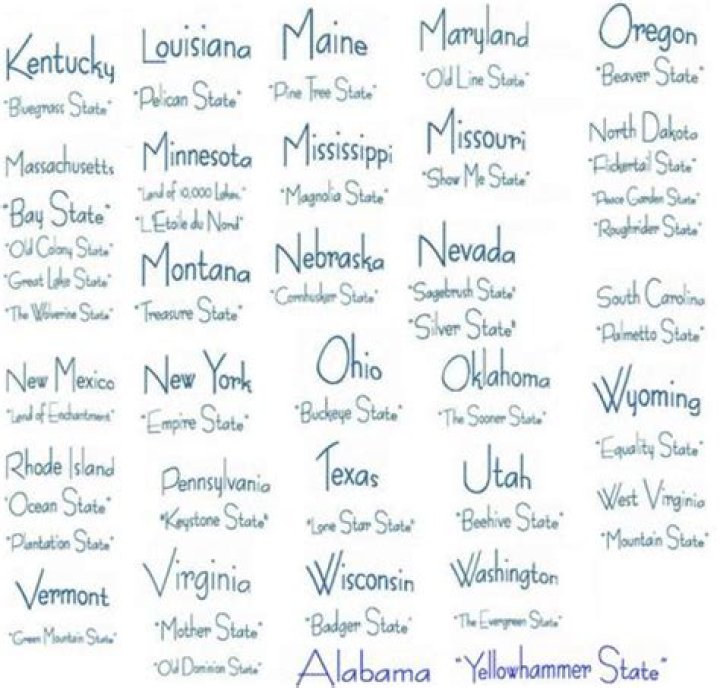 Kentucky
"Bluegrass State"
Louisiana
"Pelican State"
Maine
"Pine Tree State"
Maryland
"Old Line State"
Oregon
"Beaver State"
Massachusetts
"Bay State"
"Old Colony State"
"Great Lake State"
"The Wolverine State"
Minnesota
"Land of 10,000 Lakes"
"L'Etoile du Nord"
Mississippi
"Magnolia State"
Missouri
"Show Me State"
North Dakota
"Flickertail State"
"Peace Garden State"
"Roughrider State"
Montana
"Treasure State"
Nebraska
"Cornhusker State"
Nevada
"Sagebrush State"
"Silver State"
South Carolina
"Palmetto State"
New Mexico
"Land of Enchantment"
New York
"Empire State"
Ohio
"Buckeye State"
Oklahoma
"The Sooner State"
Wyoming
"Equality State"
Rhode Island
"Ocean State"
"Plantation State"
Pennsylvania
"Keystone State"
Texas
"Lone Star State"
Utah
"Beehive State"
West Virginia
"Mountain State"
Vermont
"Green Mountain State"
Virginia
"Mother State"
"Old Dominion State"
Wisconsin
"Badger State"
Washington
"The Evergreen State"
Alabama "Yellowhammer State"